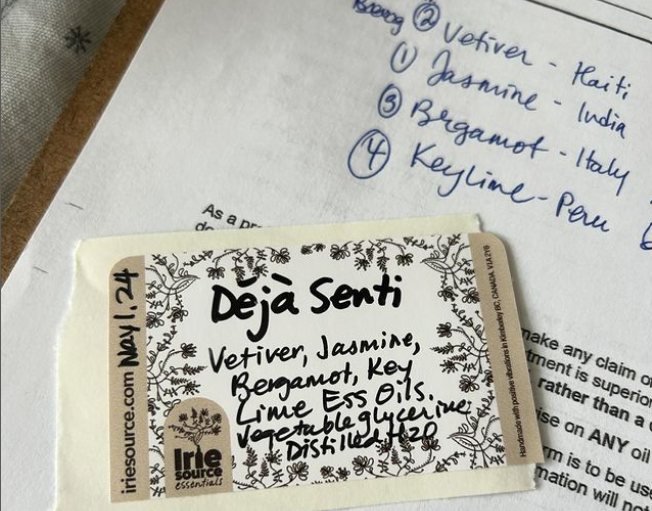 ② Vetiver - Haiti
① Jasmine - India
③ Bergamot - Italy
④ Keylime - Peru
As a
Déjà Senti
Vetiver, Jasmine,
Bergamot, Key
Lime Ess Oils.
Vegetable glycerine
Distilled H20
Irie
source
essentials
iriesource.com May 1. 24
Handmade with positive vibrations in Kimberley BC, CANADA, V1A 2Y6
make any claim
is superior
rather than a
on ANY oil
is to be
will not